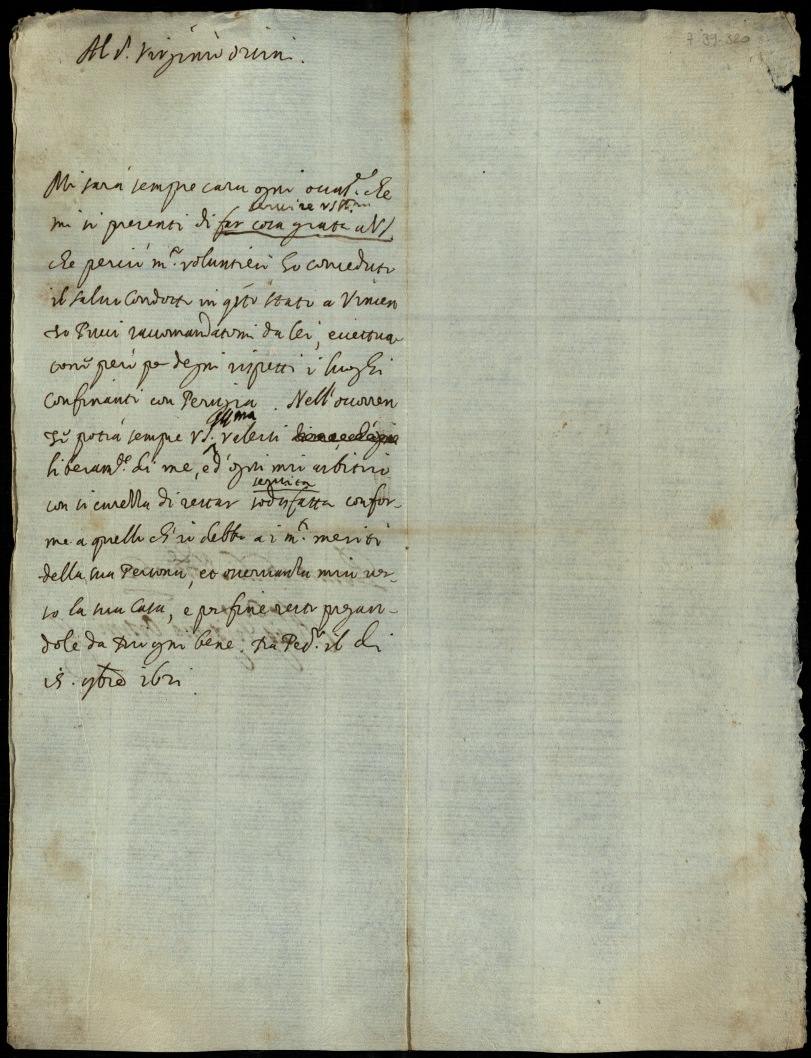 7-39-320
Al S. Virginio Orsini.
Mi sarà sempre cara ogni occas.e che
servire VS Ill.ma
mi si presenti di far cosa grata a VS
che perciò m.o volontieri ho conceduto
il salvo Condotto in q.sto stato a Vincen
zo Pucci raccomandatomi da lei, eccettua
però p degni rispetti i luoghi
confinanti con Perugia. Nell'occorren
Ill.ma
potrà sempre VS. valersi
liberam.te di me, e d'ogni mio arbitrio
servita
con sicurezza di restar sodisfatta confor-
me a quello ch'si debbe a i m.ti meriti
della sua Persona, et osservanza mia ver-
so la sua Casa, e p fine resto pregan-
dole da Dio ogni bene. Da il di
15. 9bre 1621